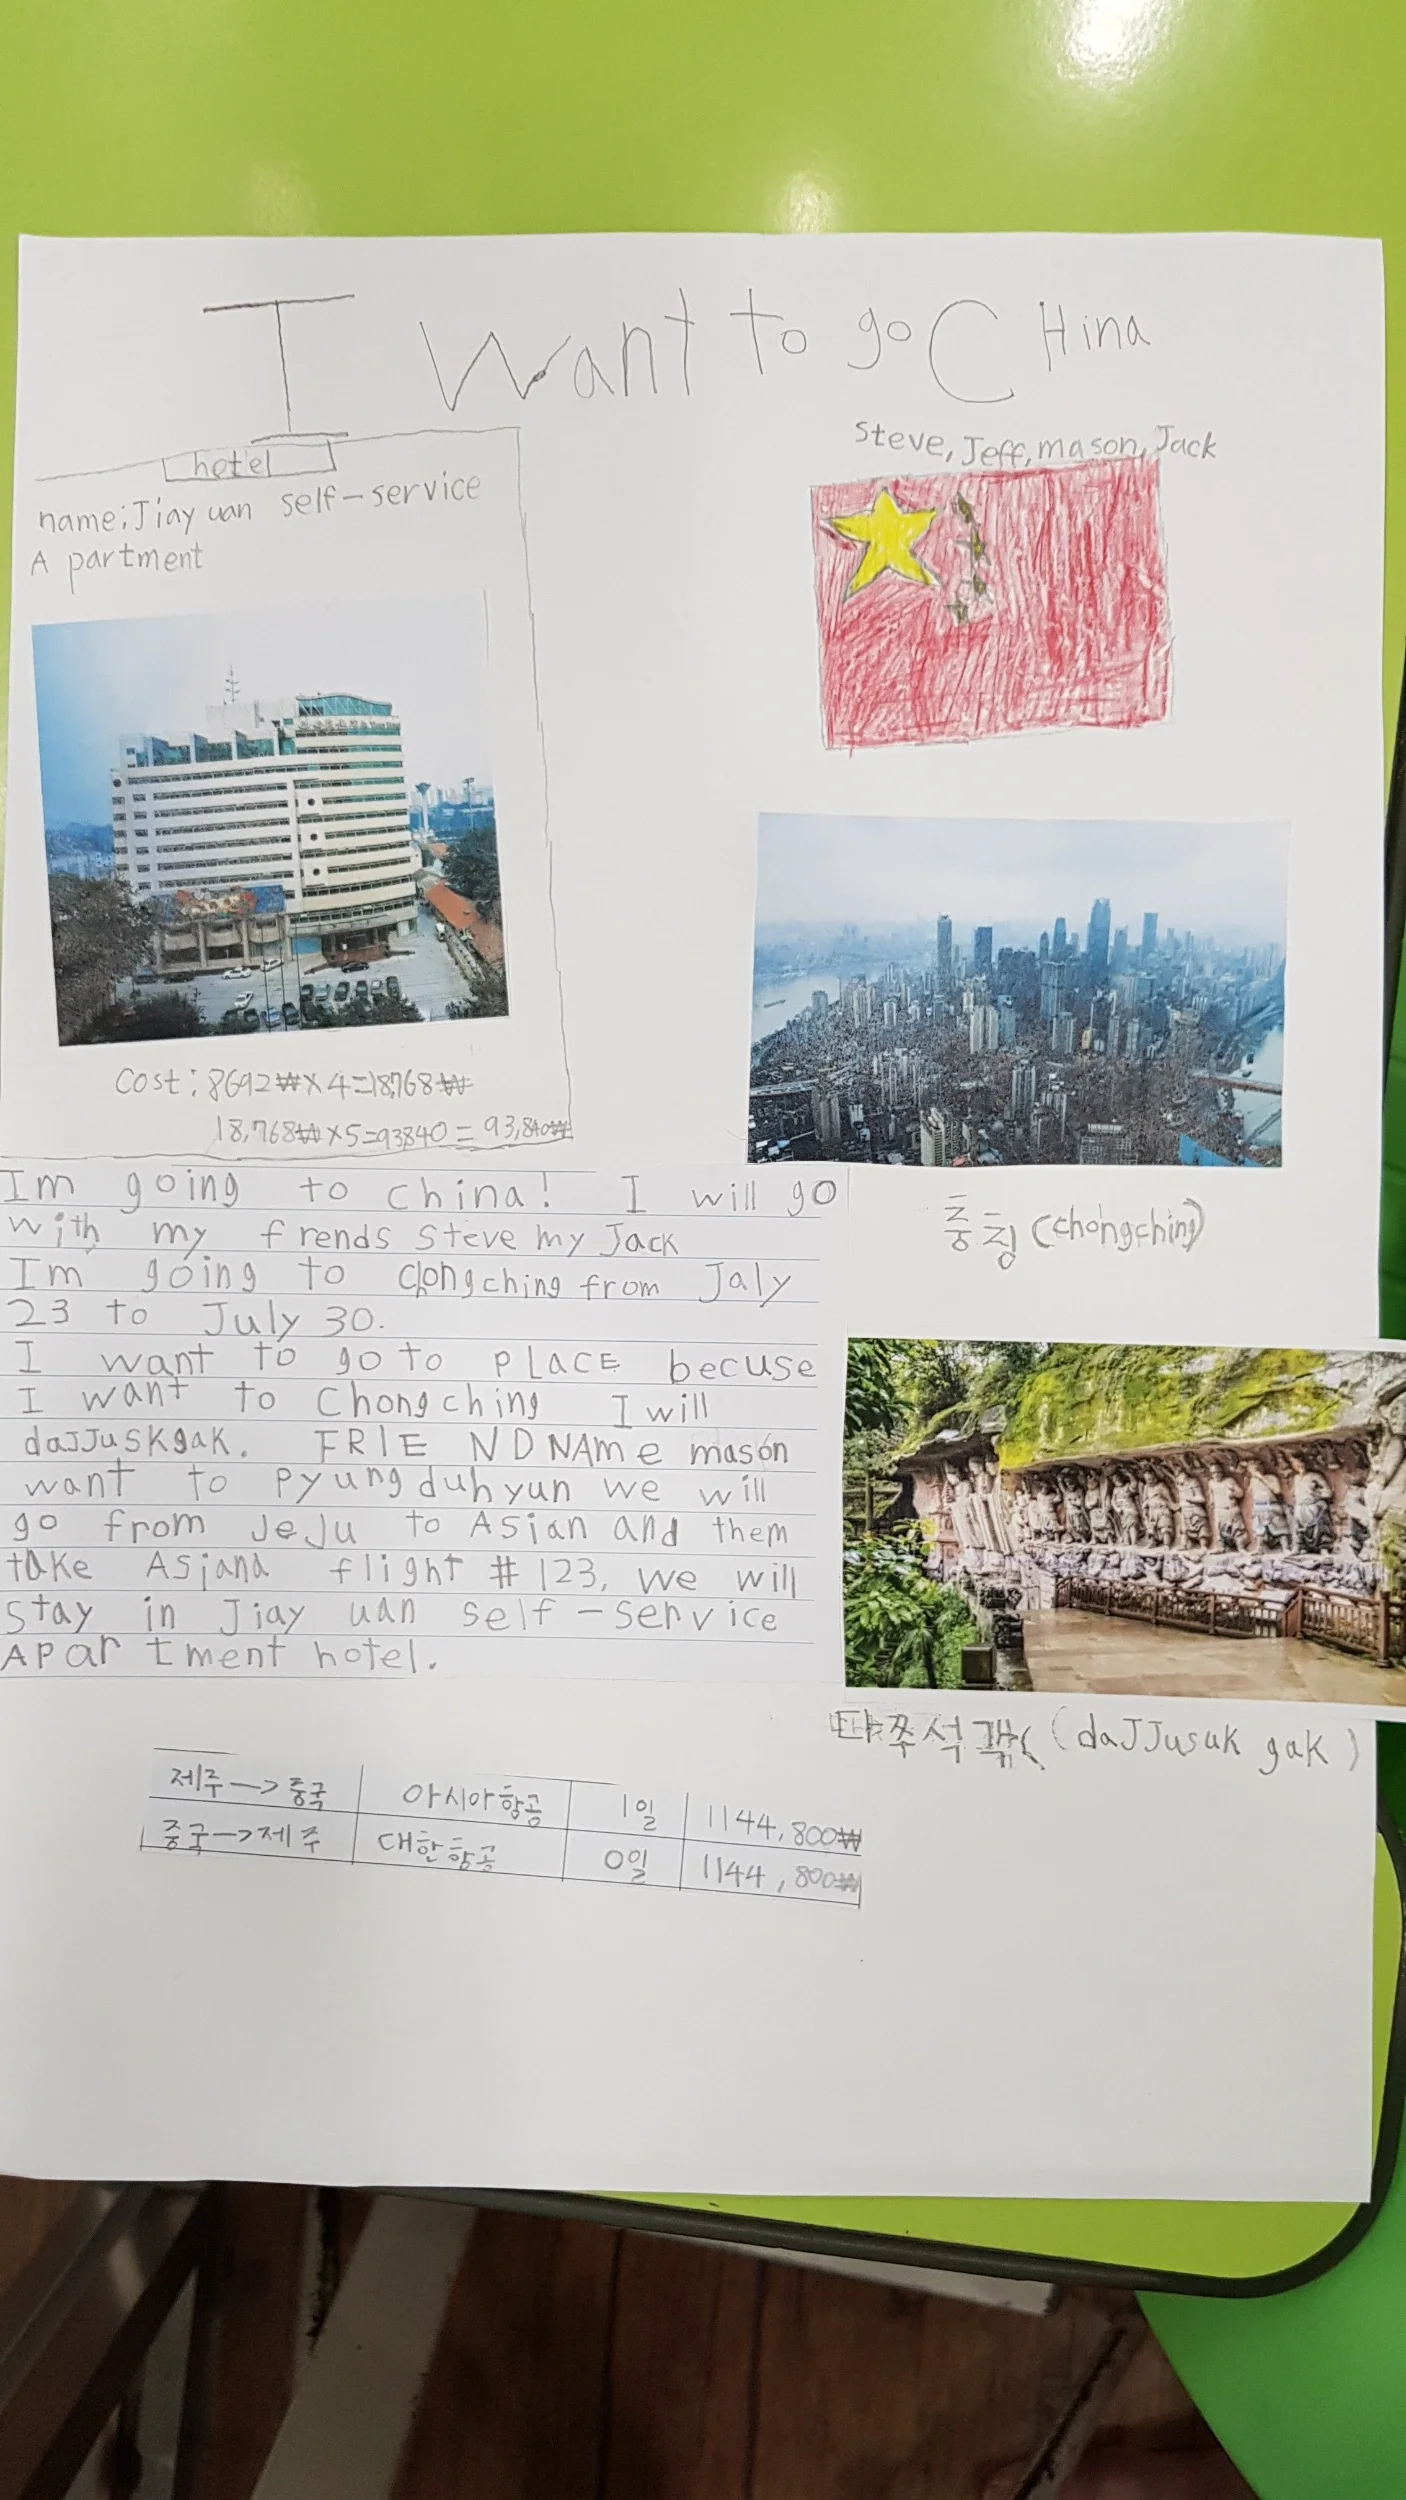 I Want to go CHina
hotel
name; Jiay uan self-service
A partment
Steve, Jeff, mason, Jack
Cost: 8692₩×4=18,768₩
18,768₩×5=93840=93,840₩
충칭(chongching)
Im going to china! I will go
with my frends Steve my Jack
Im going to chongching from Jaly
23 to July 30.
I want to go to PLACE becuse
I want to Chongching I will
daJJuskgak. FRIE NDNAme mason
want to pyungduhyun we will
go from JeJu to Asian and them
take Asiana flight #123. we will
stay in Jiay uan self-service
APar tment hotel.
(daJJusuk gak)
제주-->중국 아시아항공 1일 1144,800₩
중국-->제주 대한항공 0일 1144,800₩